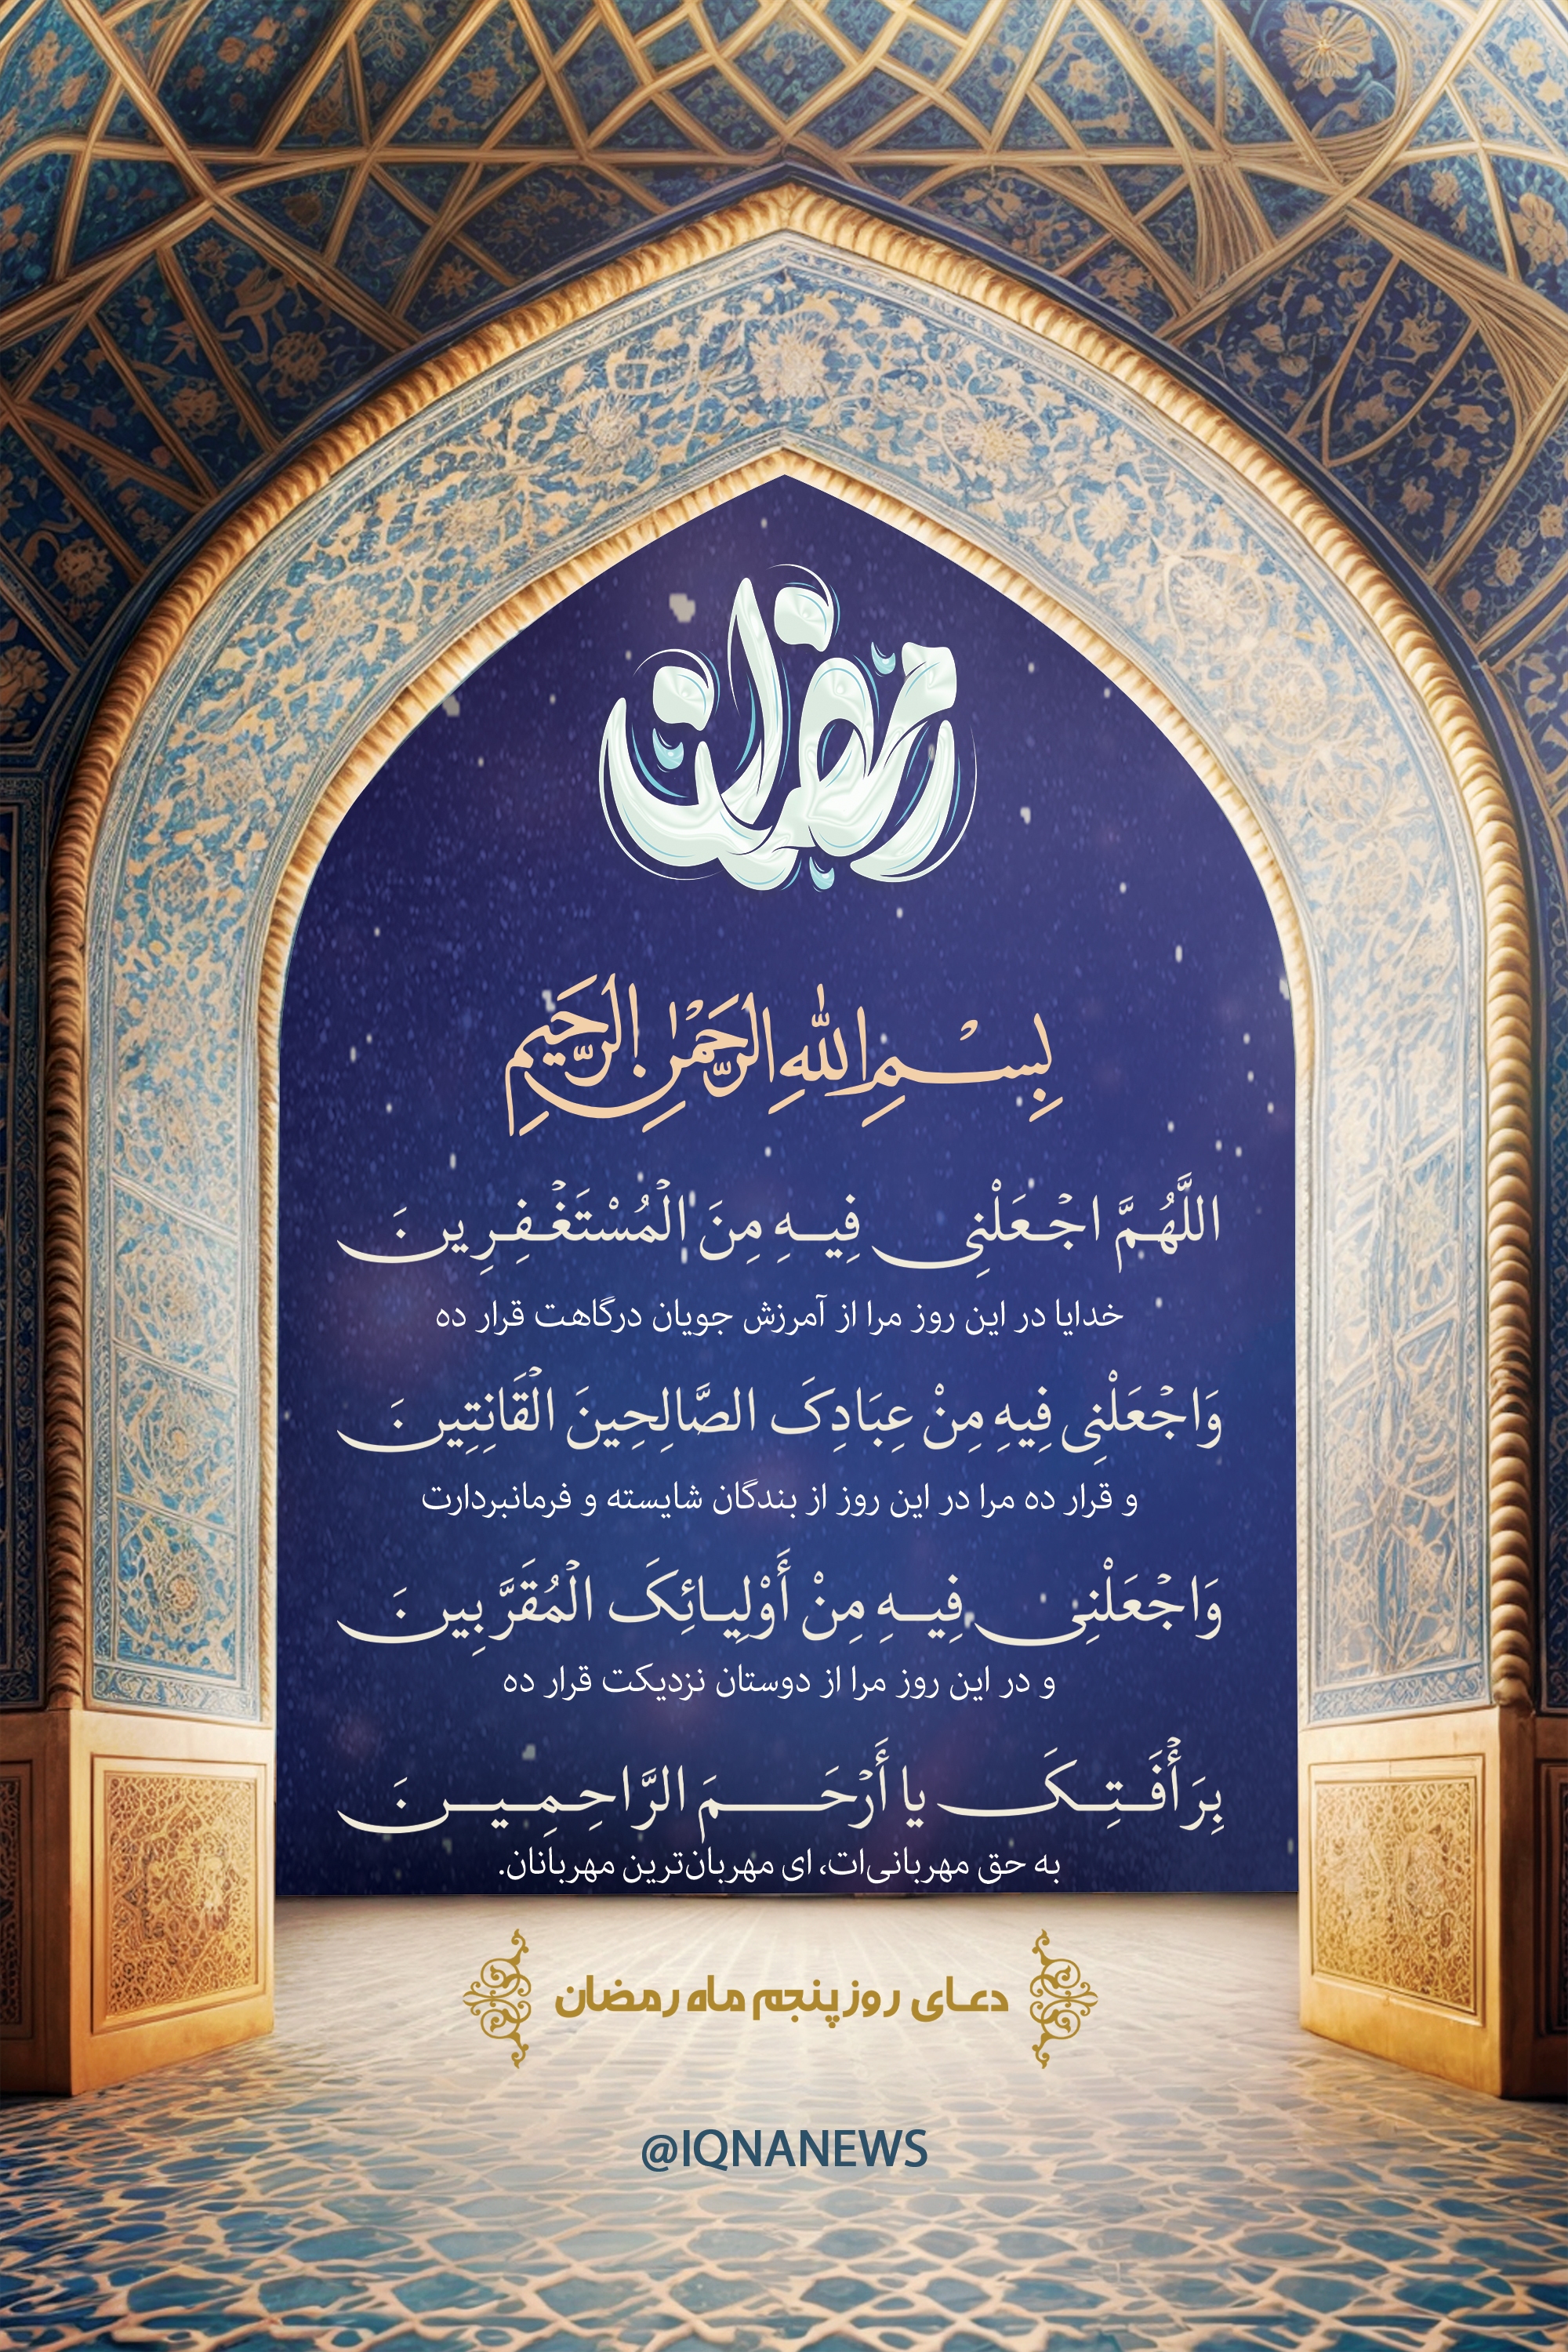 رمضان
بِسْمِ اللهِ الرَّحْمٰنِ الرَّحِیمِ
اللَّهُمَّ اجْعَلْنِی فِیهِ مِنَ الْمُسْتَغْفِرِینَ
خدایا در این روز مرا از آمرزش جویان درگاهت قرار ده
وَاجْعَلْنِی فِیهِ مِنْ عِبَادِکَ الصَّالِحِینَ الْقَانِتِینَ
و قرار ده مرا در این روز از بندگان شایسته و فرمانبردارت
وَاجْعَلْنِی فِیهِ مِنْ أَوْلِیائِکَ الْمُقَرَّبِینَ
و در این روز مرا از دوستان نزدیکت قرار ده
بِرَأْفَتِکَ یا أَرْحَمَ الرَّاحِمِینَ
به حق مهربانی‌ات، ای مهربان‌ترین مهربانان.
دعای روز پنجم ماه رمضان
@IQNANEWS